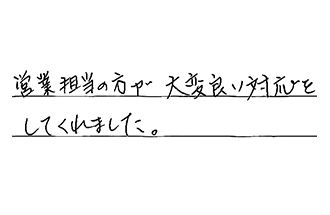 営業担当の方が大変良い対応を
してくれました。